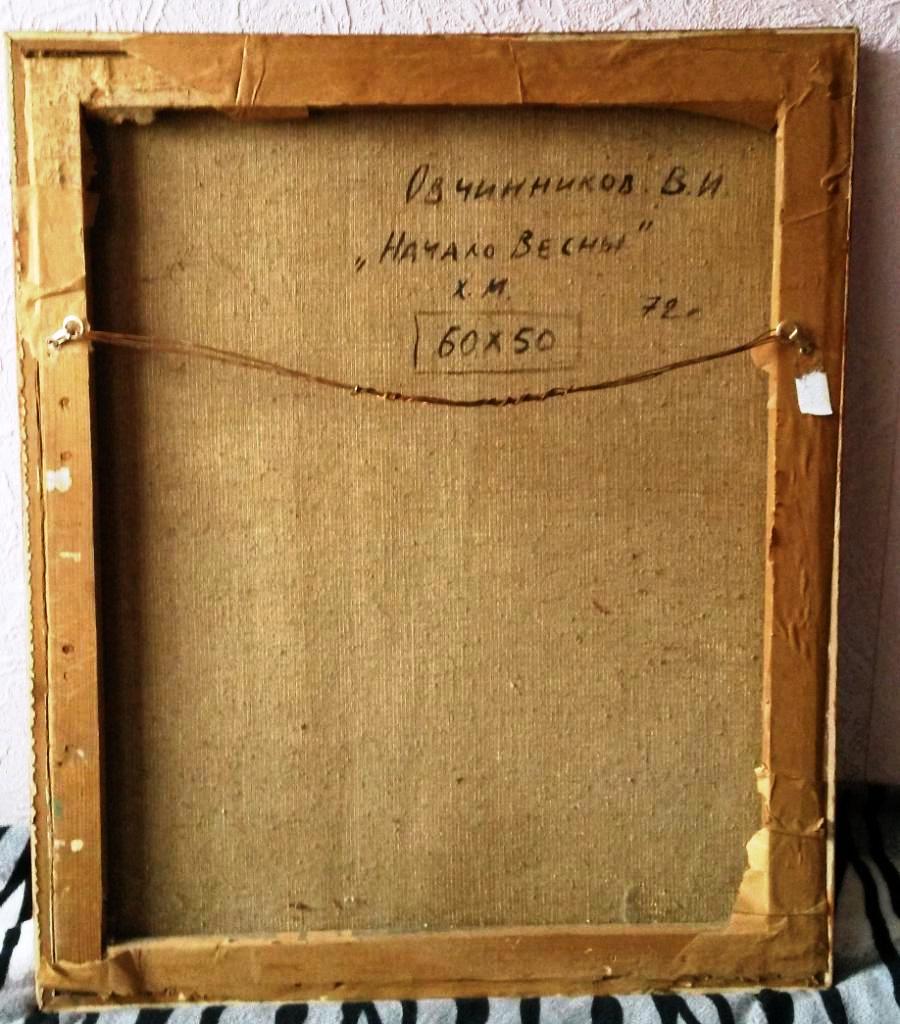 Овчинников. В.И.
„Начало Весны"
х.м.
72г
60х50